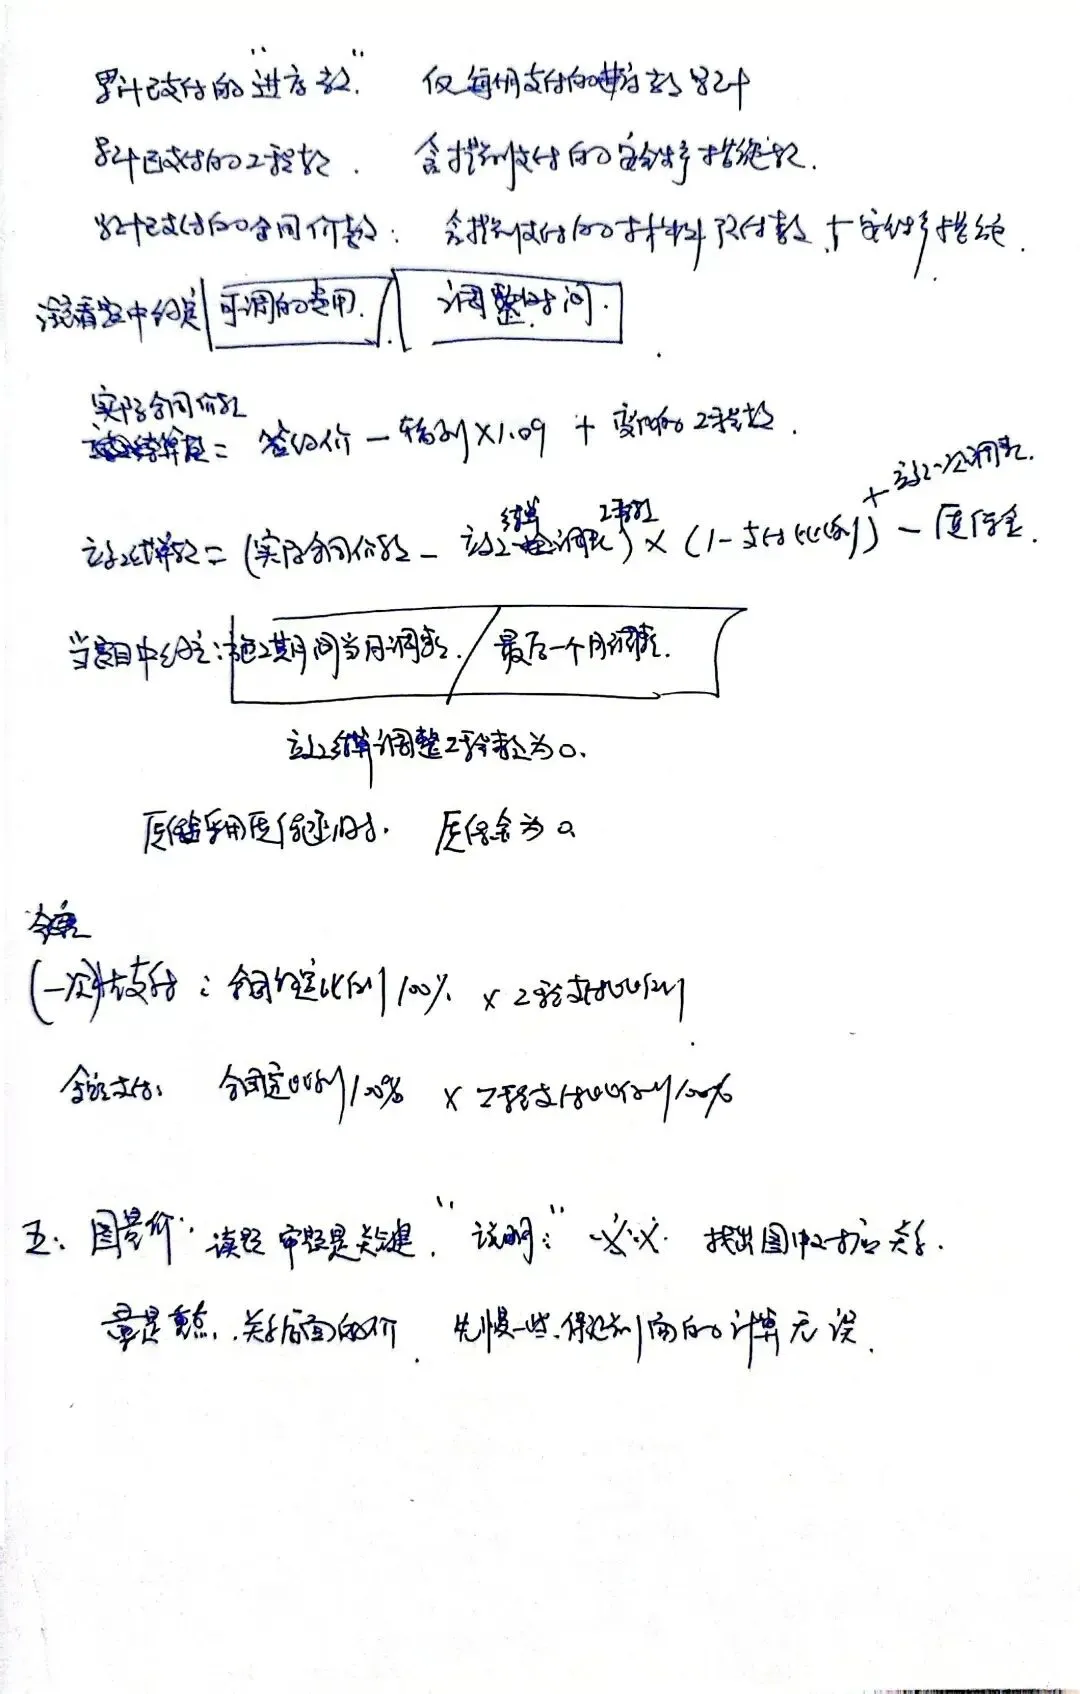 累计已支付的“进度款” 仅每月支付的进度款累计
累计已支付的工程款. 含提前支付的安全生产措施款.
累计已支付的合同价款: 含提前支付的材料预付款 + 安全生产措施.
注意看题中约定 可调的费用. / 调整时间.
实际合同价款
= 签约价 - 暂列×1.09 + 变化的工程款.
竣工结算款 = (实际合同价款 - 竣工结算调整工程款) × (1-支付比例) - 质保金.
+ 竣工一次调整.
当题目中约定: 施工期间当月调整. / 最后一个月调整.
竣工结算调整工程款为0.
质保金采用质保函时. 质保金为0
(一次)性支付: 合同约定比例/100% × 工程款支付比例
全额支付: 合同约定比例/100% × 工程款支付比例/100%
五: 图量价: 读题审题是关键. “说明: ” 找出图中对应关系.
量是重点. 关系后面的价. 先慢一些. 保证前面的计算无误.